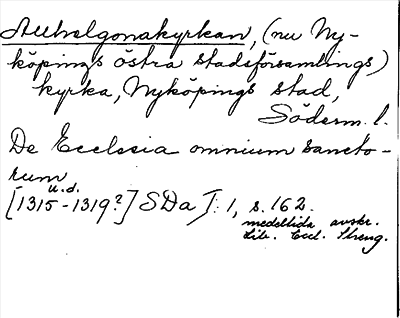 Allhelgonakyrkan, (nu Ny-
köpings östra stadsförsamlings)
kyrka, Nyköpings stad,
Söderm. l.
De Ecclesia omnium sancto-
rum
u.d.
[1315-1319?] SDa I: 1, s. 162.
medeltida avskr.
Lib. Eccl. Streng.